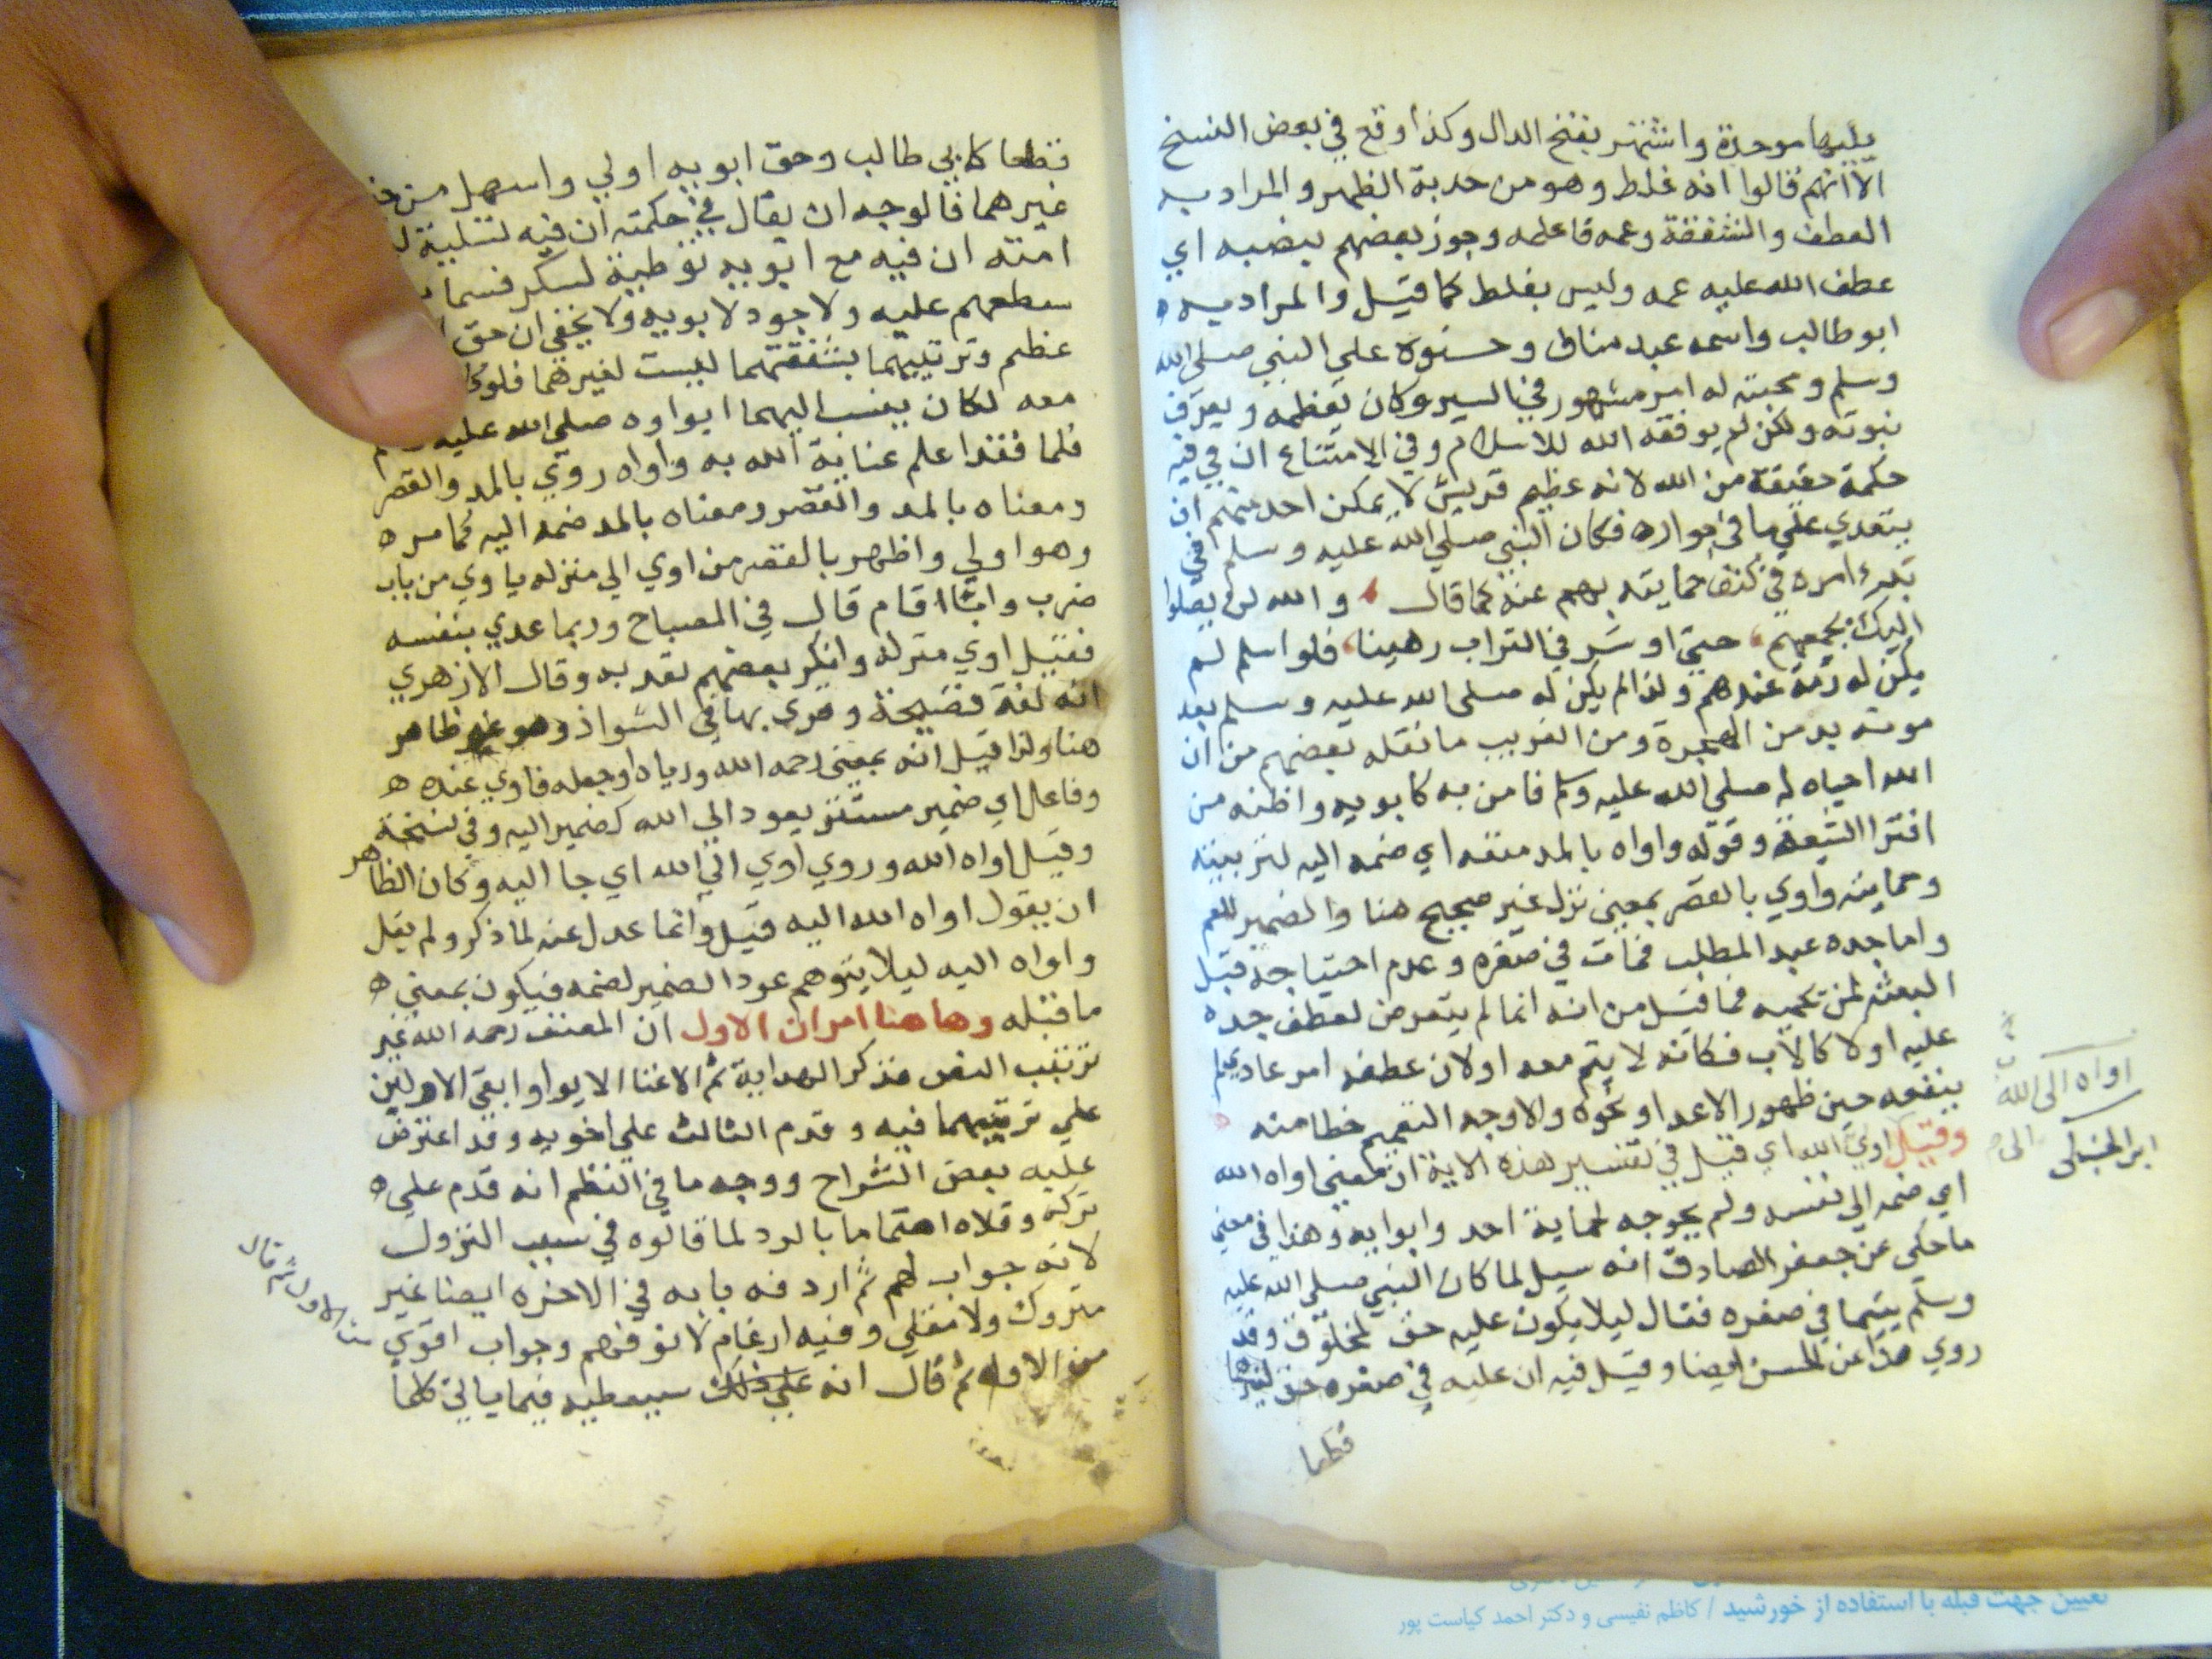 يليها موحدة واشتهر بفتح الدال وكذا وقع في بعض النسخ
الا انهم قالوا انه غلط وهو من حدبة الظهر والمراد به
العطف والشفقة وعمه فاعله وجوز بعضهم نصبه اي
عطف الله عليه عمه وليس بغلط كما قيل والمراد به
ابو طالب واسمه عبد مناف وحنوه علي النبي صلي الله
وسلم ومحبته له امر مشهور في السير وكان يعظمه ويعرف
نبوته ولكن لم يوفقه الله للاسلام وفي الامتناع ان في فيه
حكمة حقيقة من الله لانه عظيم قريش لا يمكن احد منهم ان
يتعدي علي ما في جواره فكان النبي صلي الله عليه وسلم في
بدء امره في كنف حمايته بهم عنه كما قال والله لن يصلوا
اليك بجمعهم حتي اوسد في التراب رهينا فلو اسلم لم
يكن له ذمة عندهم ولذا لم يكن له صلي الله عليه وسلم بعد
موته بد من الهجرة ومن الغريب ما نقله بعضهم من ان
الله احياه له صلي الله عليه وسلم فامن به كابويه واظنه من
افترا الشيعة وقوله واواه بالمد متعد اي ضمه اليه لتربيته
وحمايته واوي بالقصر بمعني نزل غير صحيح هنا والضمير للعم
واما جده عبد المطلب فمات في صغره وعدم احتياجه قبل
البعثة لمن يحميه فما قيل من انه انما لم يتعرض لعطف جده
عليه اولا كالاب فكانه لا يتم معه اولان عطفه امر عادي لم
ينفعه حين ظهور الاعدا ونحوه والاوجه التعميم خطا منه
وقيل اوي الله اي قيل في تفسير هذه الاية ان معني اواه الله
اي ضمه الي نفسه ولم يحوجه لحماية احد وايوايه وهذا في معني
ما حكي عن جعفر الصادق انه سيل لما كان النبي صلي الله عليه
وسلم يتيما في صغره فقال ليلا يكون عليه حق لمخلوق وقد
روي هذا عن الحسن ايضا وقيل فيه ان عليه في صغره حق لغيرهما
قطعا
اواه الي الله
قطعا كابي طالب وحق ابويه اولي واسهل من
غيرهما فالوجه ان يقال في حكمته ان فيه لتسلية
امته ان فيه مع ابويه توطية
عليه ولا جود لابويه ولا يخفي ان حق
عظم وتربيتهما بشفقتهما ليست لغيرهما
معه لكان ينسب اليهما ايواوه صلي الله عليه وسلم
فلما فقدا علم عناية الله به واواه روي بالمد والقصر
ومعناه بالمد والقصر ومعناه بالمد ضمه اليه كما مر
وهو اولي واظهر بالقصر من اوي الي منزله ياوي من باب
ضرب اقام قال في المصباح وربما عدي بنفسه
فقيل اوي منزله وانكر بعضهم تعديه وقال الازهري
انه لغة فصيحة وقري بها في الشواذ وهو غير ظاهر
هنا ولذا قيل انه بمعني رحمه الله ورباه او جعله فاوي عنده
وفاعل اي ضمير مستتر يعود الي الله كضمير اليه وفي نسخة
وقيل اواه الله وروي اوي الي الله اي جا اليه وكان الظاهر
ان يقول اواه الله اليه قيل وانما عدل عنه لما ذكر ولم يقل
واواه اليه ليلا يتوهم عود الضمير لضمه فيكون بمعني
ما قبله وهاهنا امران الاول ان المصنف رحمه الله غير
ترتيب النص فذكر الهداية ثم الاغنا الايوا وابقي الاوليين
علي ترتيبهما فيه وقدم الثالث علي اخويه وقد اعترض
عليه بعض الشراح ووجه ما في النظم انه قدم علي
تركه وقلاه اهتماما بالرد لما قالوه في سبب النزول
لانه جواب لهم ثم اردفه بابه في الاخره ايضا غير
متروك ولا مقلي وفيه ارغام لانوفهم وجواب اقوي
من الاول ثم قال انه علي ذلك سيعطيه فيما ياتي كلما
من الاول ثم قال
تعیین جهت قبله با استفاده از خورشید / کاظم نفیسی و دکتر احمد کیاست پور